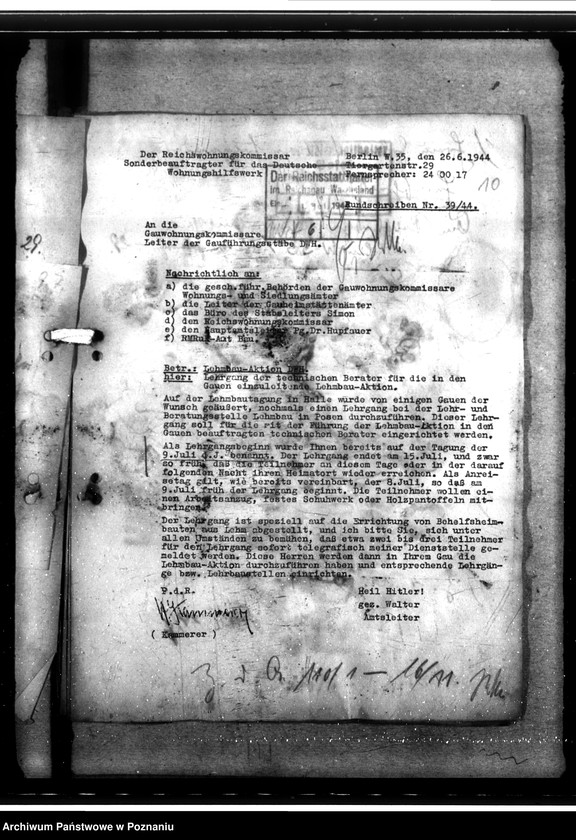 Der Reichswohnungskommissar
Sonderbeauftragter für das Deutsche
Wohnungshilfswerk
Berlin W.35, den 26.6.1944
Tiergartenstr.29
Fernsprecher: 24 00 17
10
Der Reichsstatthalter
im Reichsgau Wartheland
Rundschreiben Nr. 39/44.
An die
Gauwohnungskommissare
Leiter der Gauführungsstäbe DWH.
29.
Nachrichtlich an:
a) die gesch.führ.Behörden der Gauwohnungskommissare
Wohnungs- und Siedlungsämter
b) die Leiter der Gauheimstättenämter
c) das Büro des Stabsleiters Simon
d) den Reichswohnungskommissar
e) den Hauptamtsleiter Pg.Dr.Hupfauer
f)
Betr.: Lehmbau-Aktion DWH.
hier: Lehrgang der technischen Berater für die in den
Gauen einzuleitende Lehmbau-Aktion.
Auf der Lehmbautagung in Halle wurde von einigen Gauen der
Wunsch geäußert, nochmals einen Lehrgang bei der Lehr- und
Beratungsstelle Lehmbau in Posen durchzuführen. Dieser Lehr-
gang soll für die mit der Führung der Lehmbau-Aktion in den
Gauen beauftragten technischen Berater eingerichtet werden.
Als Lehrgangsbeginn wurde Ihnen bereits auf der Tagung der
9.Juli d.J. benannt. Der Lehrgang endet am 15.Juli, und zwar
so früh, das die Teilnehmer an diesem Tage oder in der darauf
folgenden Nacht ihren Heimatort wieder erreichen. Als Anrei-
setag gilt, wie bereits vereinbart, der 8.Juli, so daß am
9.Juli früh der Lehrgang beginnt. Die Teilnehmer wollen ei-
nen Arbeitsanzug, festes Schuhwerk oder Holzpantoffeln mit-
bringen.
Der Lehrgang ist speziell auf die Errichtung von Behelfsheim-
bauten aus Lehm abgestellt, und ich bitte Sie, sich unter
allen Umständen zu bemühen, das etwa zwei bis drei Teilnehmer
für den Lehrgang sofort telegrafisch meiner Dienststelle ge-
meldet werden. Diese Herren werden dann in Ihrem Gau die
Lehmbau-Aktion durchzuführen haben und entsprechende Lehrgän-
ge bzw. Lehrbaustellen einrichten.
F.d.R.
Heil Hitler!
gez. Walter
Amtsleiter
( Kammerer )
Archiwum Państwowe w Poznaniu